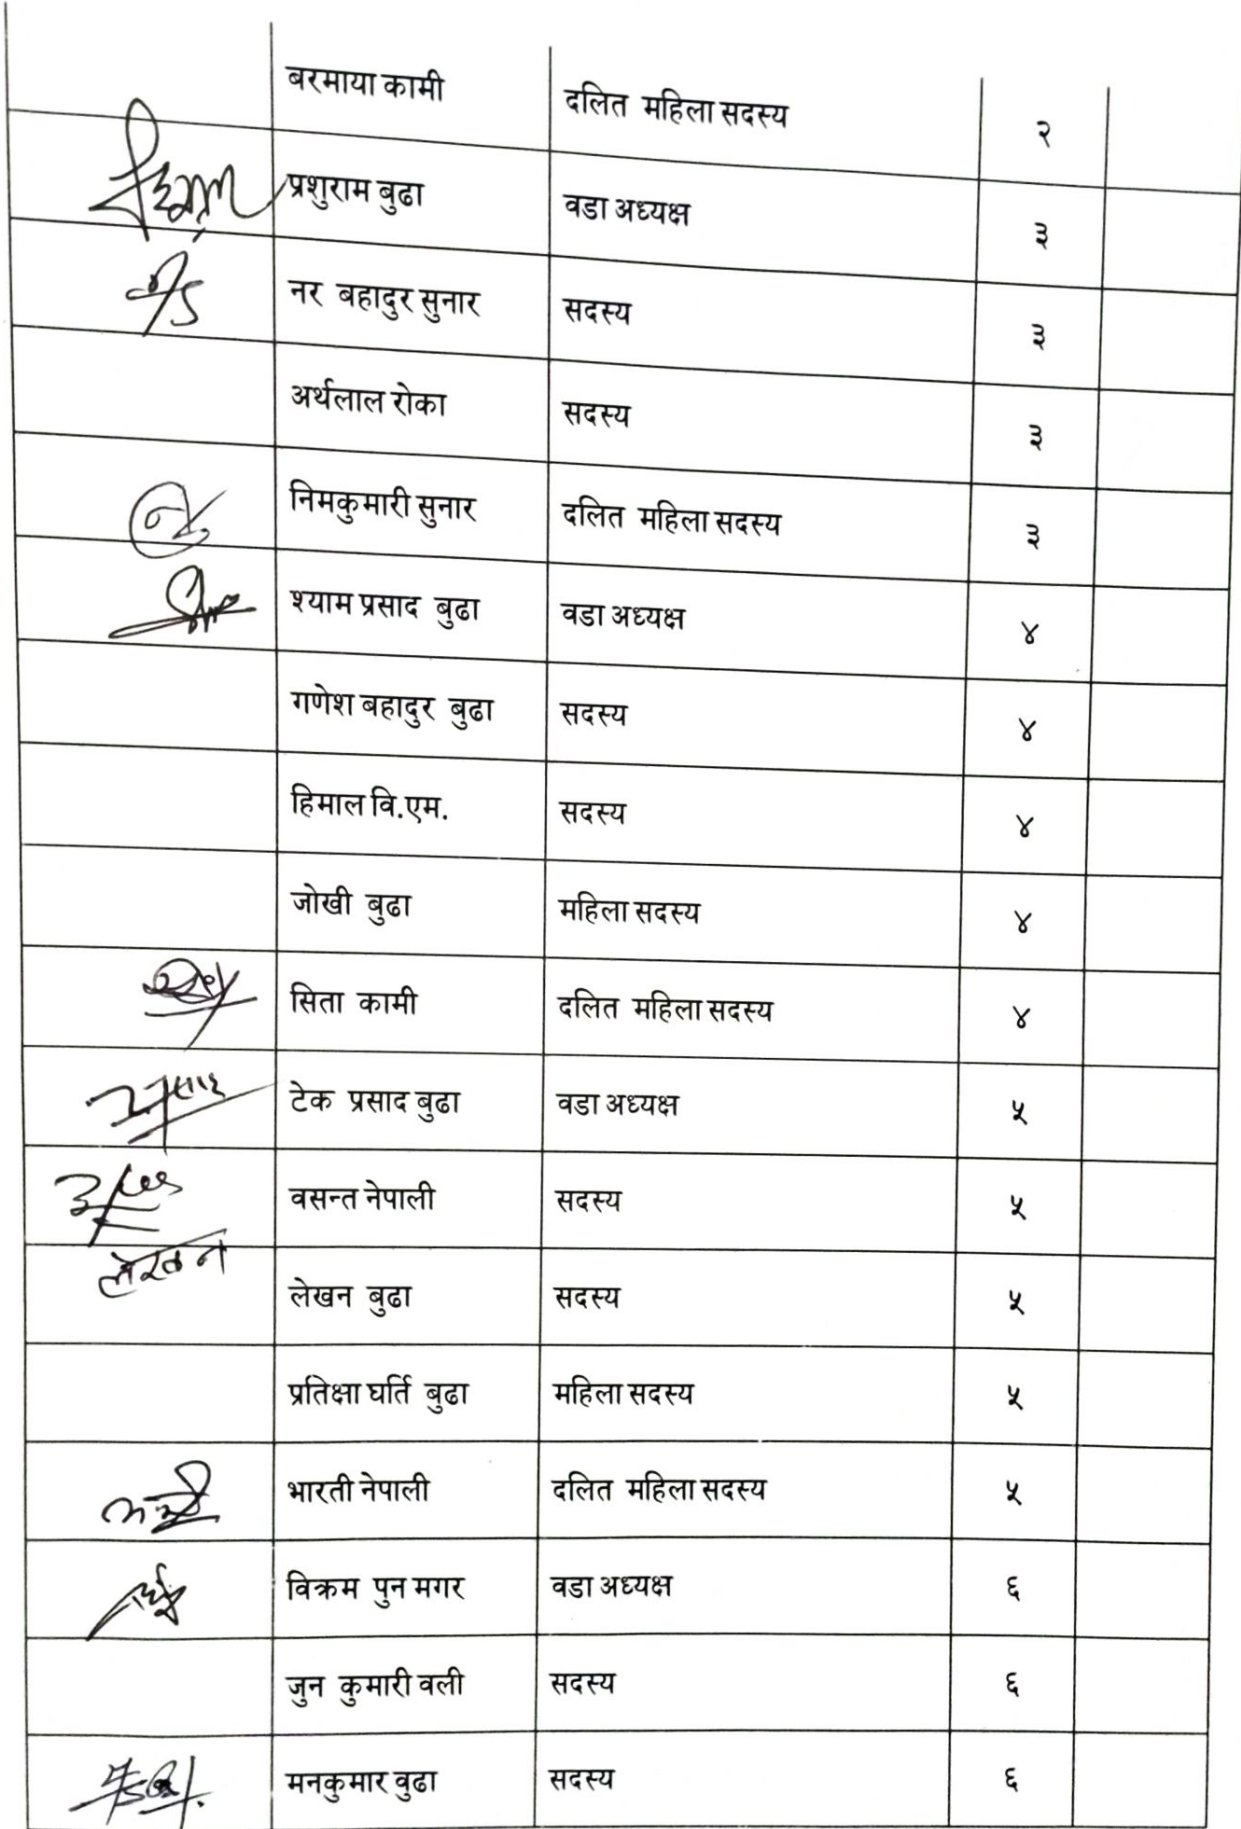 बरमाया कामी दलित महिला सदस्य २
प्रशुराम बुढा वडा अध्यक्ष ३
नर बहादुर सुनार सदस्य ३
अर्थलाल रोका सदस्य ३
निमकुमारी सुनार दलित महिला सदस्य ३
श्याम प्रसाद बुढा वडा अध्यक्ष ४
गणेश बहादुर बुढा सदस्य ४
हिमाल वि.एम. सदस्य ४
जोखी बुढा महिला सदस्य ४
सिता कामी दलित महिला सदस्य ४
टेक प्रसाद बुढा वडा अध्यक्ष ५
वसन्त नेपाली सदस्य ५
लेखन लेखन बुढा सदस्य ५
प्रतिक्षा घर्ति बुढा महिला सदस्य ५
भारती नेपाली दलित महिला सदस्य ५
विक्रम पुन मगर वडा अध्यक्ष ६
जुन कुमारी वली सदस्य ६
मनकुमार वुढा सदस्य ६